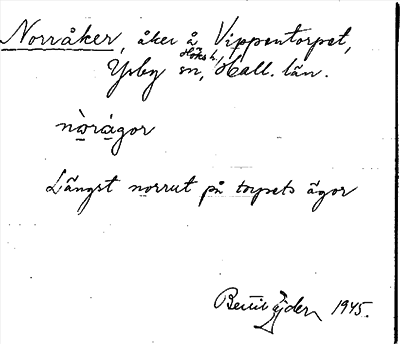 Norråker, åker å Vippentorpet,
Ysby sn, Höks h., Hall. län.
nò̱rá̱gor
Längst norrut på torpets ägor
Bertil Ejder 1945.